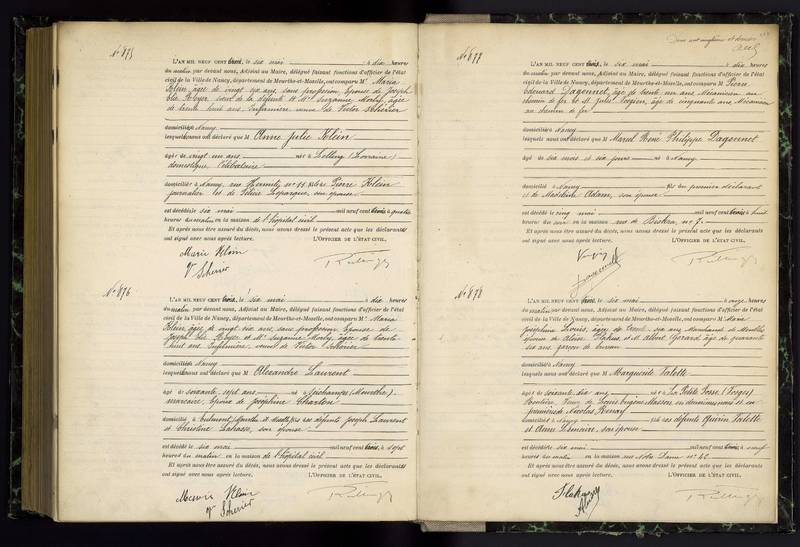 No 875
L'AN MIL NEUF CENT trois, le six mai à dix heures
du matin par devant nous, Adjoint au Maire, délégué faisant fonctions d'officier de l'état
civil de la Ville de Nancy, département de Meurthe-et-Moselle, ont comparu Mr Maria
Klein âgée de vingt six ans sans profession, épouse de Joseph
et Me Suzanne Morly, âgée
de trente huit ans infirmière veuve de Victor
domiciliés à Nancy
lesquels nous ont déclaré que M Anne Julie Klein
âgée de vingt un ans née à Lelling (Lorraine)
domestique Célibataire
domiciliée à Nancy, rue Hermite, no fille de Pierre Klein
journalier et de son épouse
est décédée six mai mil neuf cent trois à quatre
heures du matin en la maison de l'hôpital civil
Et après nous être assuré du décès, nous avons dressé le présent acte que les déclarants
ont signé avec nous après lecture. L'OFFICIER DE L'ÉTAT CIVIL,
Marie Klein
No 876
L'AN MIL NEUF CENT trois, le six mai à dix heures
du matin par devant nous, Adjoint au Maire, délégué faisant fonctions d'officier de l'état
civil de la Ville de Nancy, département de Meurthe-et-Moselle, ont comparu Mr Maria
Klein, âgée de vingt six ans, sans profession épouse de
Joseph et Me Suzanne Morly, âgée de trente
huit ans infirmière, veuve de Victor
domiciliés à Nancy
lesquels nous ont déclaré que M Alexandre Laurent
âgé de soixante sept ans né à Seichamps (Meurthe)
époux de Joséphine Charton
domicilié à fils des défunts Joseph Laurent
et Christine son épouse
est décédé le six mai mil neuf cent trois, à sept
heures du matin en la maison de l'hôpital civil
Et après nous être assuré du décès, nous avons dressé le présent acte que les déclarants
ont signé avec nous après lecture. L'OFFICIER DE L'ÉTAT CIVIL,
Marie Klein
No 877
L'AN MIL NEUF CENT trois, le six mai à dix heures
du matin par devant nous, Adjoint au Maire, délégué faisant fonctions d'officier de l'état
civil de la Ville de Nancy, département de Meurthe-et-Moselle, ont comparu Mr Pierre
Edouard Dagonnet, âgé de trente un ans Mécanicien au
chemin de fer et Jules âgé de cinquante ans Mécanicien
au chemin de fer
domiciliés à Nancy
lesquels nous ont déclaré que M Marcel René Philippe Dagonnet
âgé de six mois et six jours né à Nancy
domicilié à Nancy fils du premier déclarant
et de Madeleine Adam, son épouse
est décédé le cinq mai mil neuf cent trois à huit
heures du soir en la maison rue de no 7
Et après nous être assuré du décès, nous avons dressé le présent acte que les déclarants
ont signé avec nous après lecture. L'OFFICIER DE L'ÉTAT CIVIL,
No 878
L'AN MIL NEUF CENT trois, le six mai à onze heures
du matin par devant nous, Adjoint au Maire, délégué faisant fonctions d'officier de l'état
civil de la Ville de Nancy, département de Meurthe-et-Moselle, ont comparu Mr Marie
Joséphine Louis, âgée de trente six ans Marchande de Meubles
épouse de et Albert Gérard âgé de quarante
six ans garçon de bureau
domiciliés à Nancy
lesquels nous ont déclaré que M Marguerite Valette
âgée de soixante dix ans née à La Petite Fosse (Vosges)
Rentière, veuve de Louis Eugène Masson en deuxièmes noces et en
premières de Nicolas
domiciliée à Nancy fille des défunts Quirin Valette
et Anne son épouse
est décédée six mai mil neuf cent trois à neuf
heures du matin en la maison rue Notre Dame no 40
Et après nous être assuré du décès, nous avons dressé le présent acte que les déclarants
ont signé avec nous après lecture. L'OFFICIER DE L'ÉTAT CIVIL,